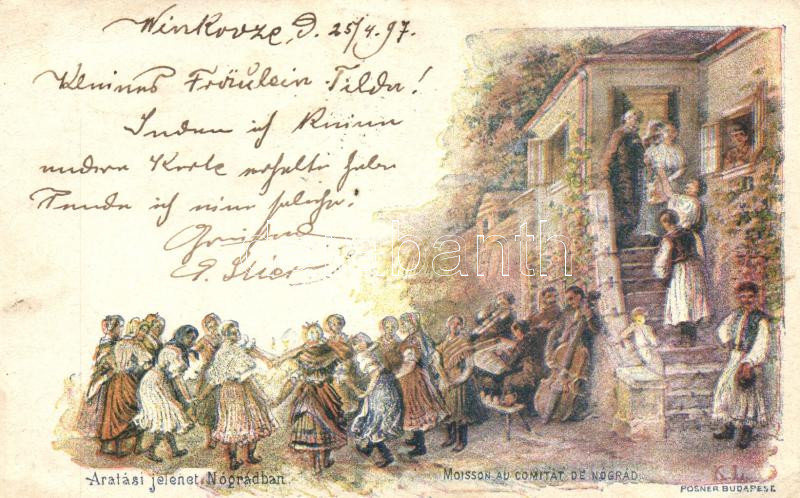 Winkovze, d. 25/4.97.
Kleines Fräulein Tilda!
Indem ich keine
andere Karte erhalte habe
sende ich eine solche!
G. Stier
Darabanth
Aratási jelenet Nógrádban
MOISSON AU COMITAT DE NÓGRÁD.
K.L.
POSNER BUDAPEST